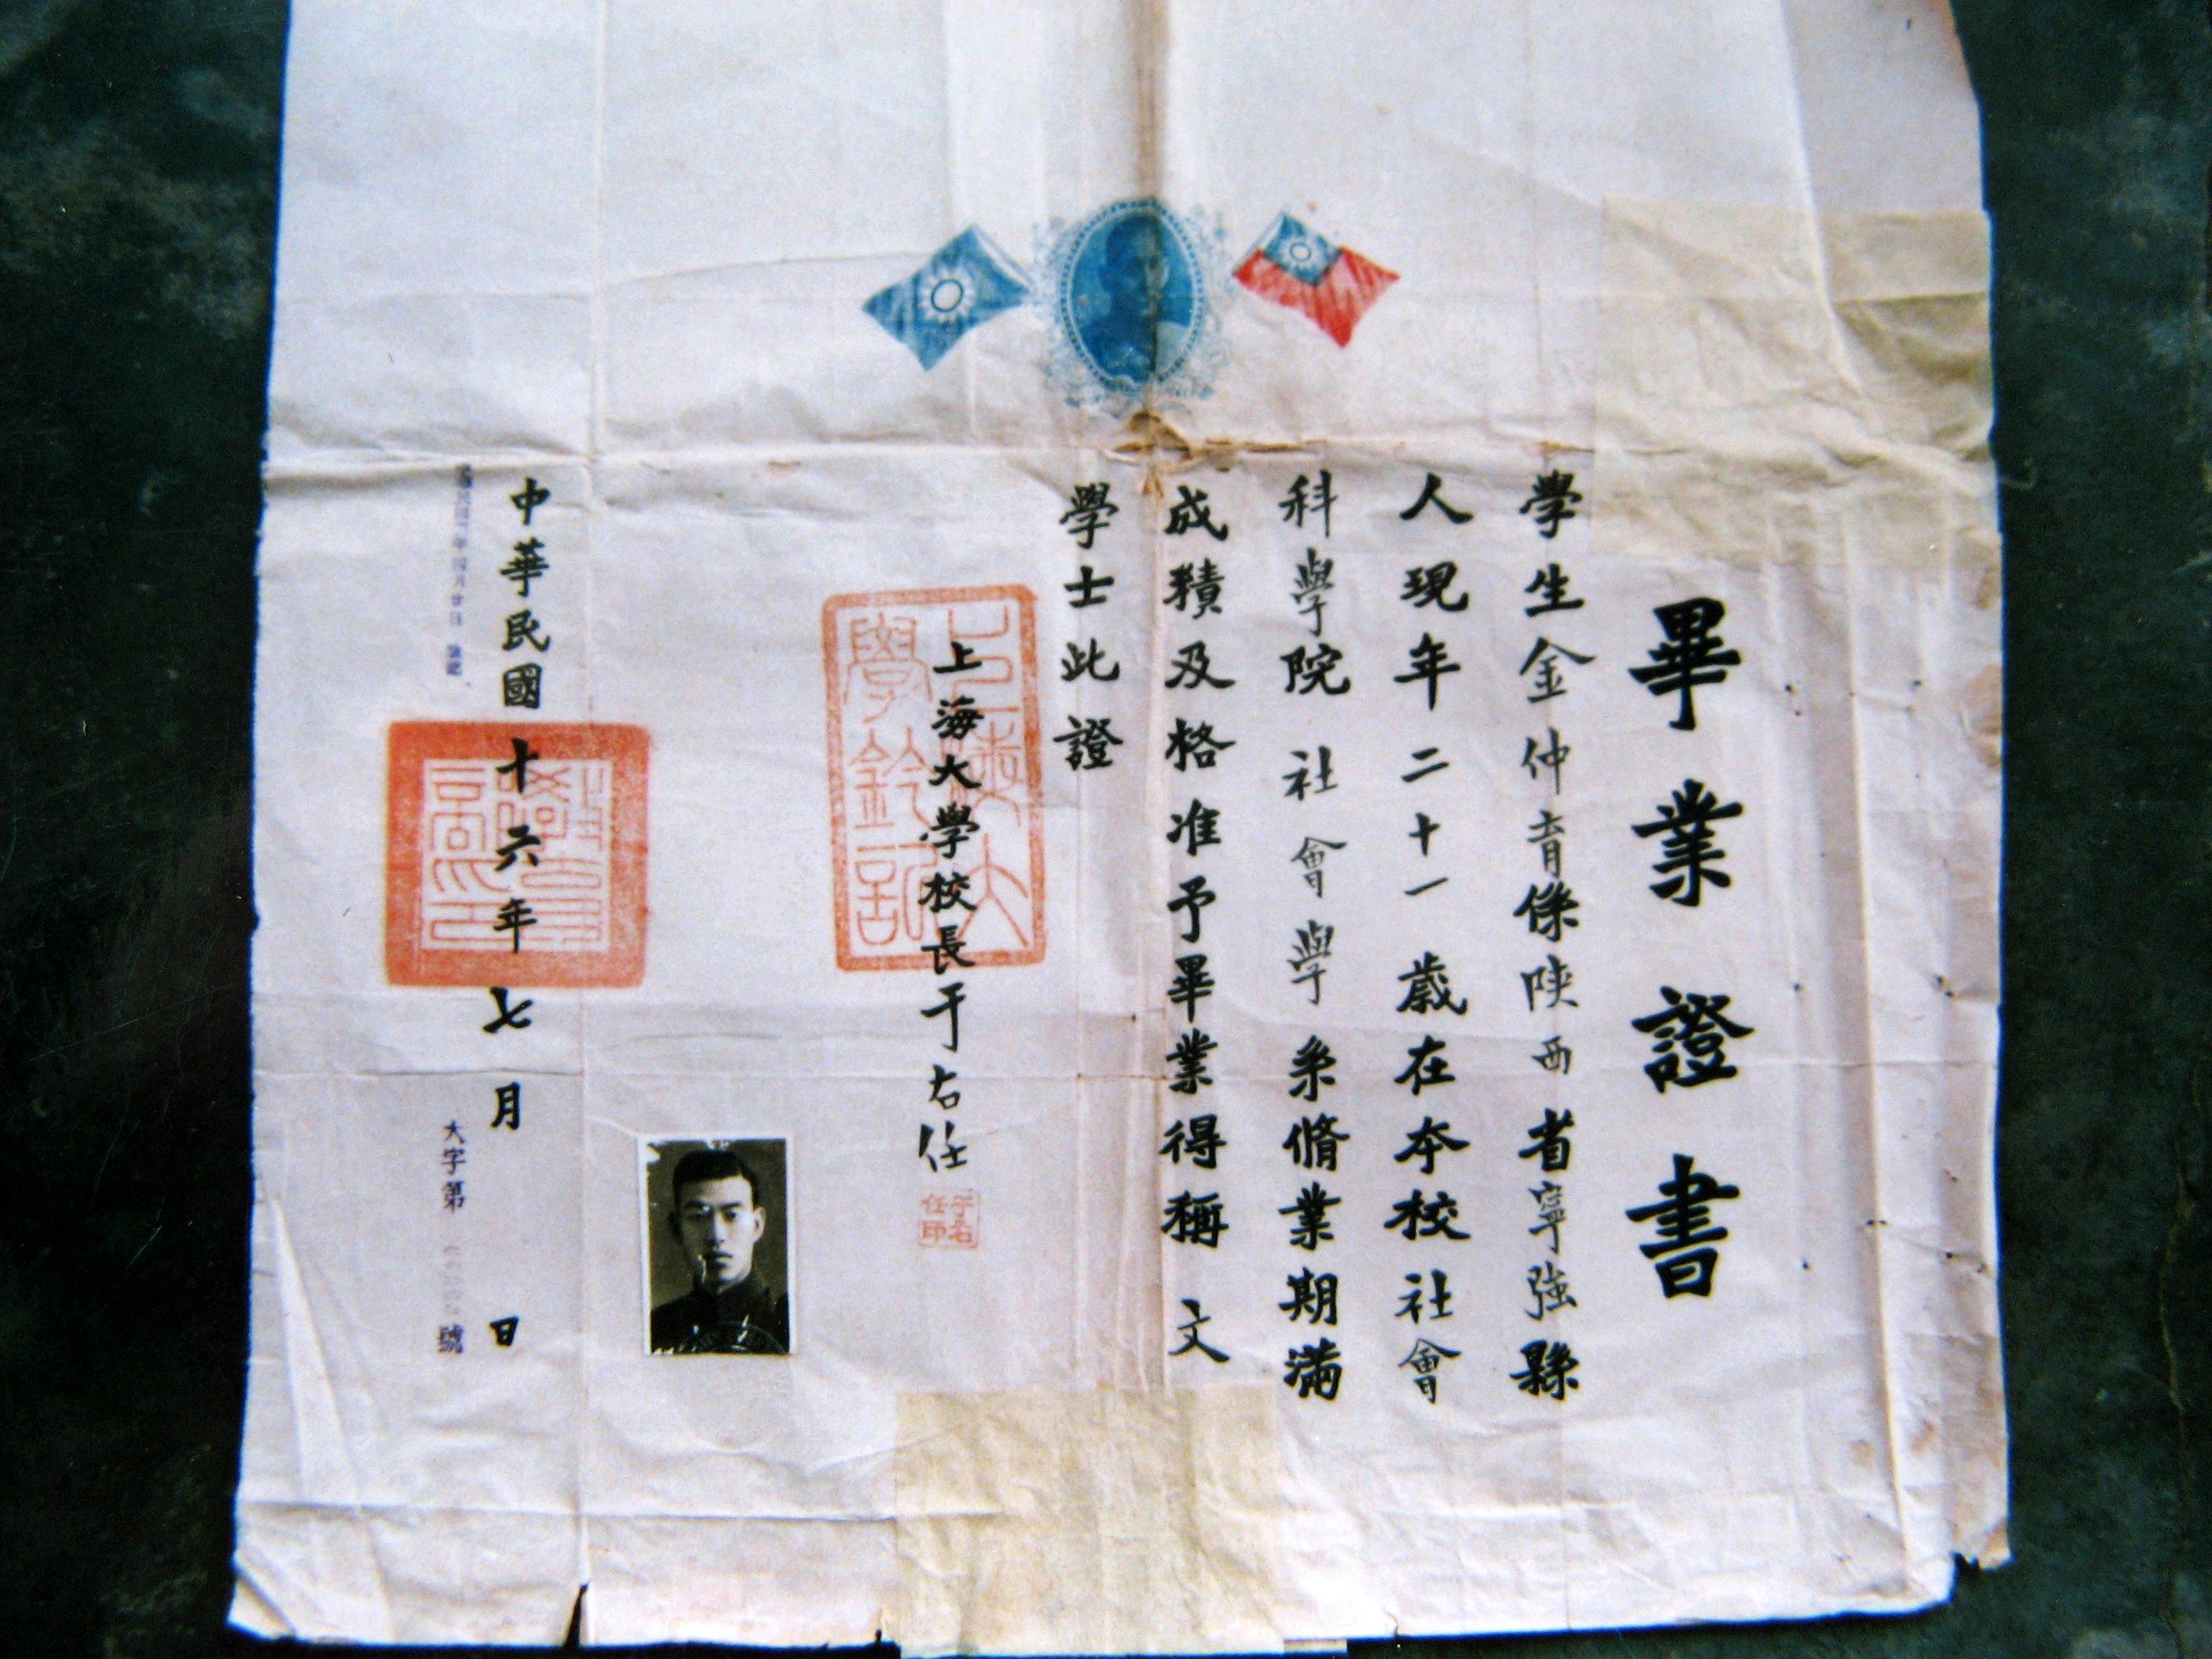 畢業證書
學生金仲育係陝西省寧強縣
人現年二十一歲在本校社會
科學院社會學系脩業期滿
成績及格准予畢業得稱文
學士此證
上海大學校長于右任
上海大學鈐記
于右任印
中華民國十六年七月 日
大字第 號